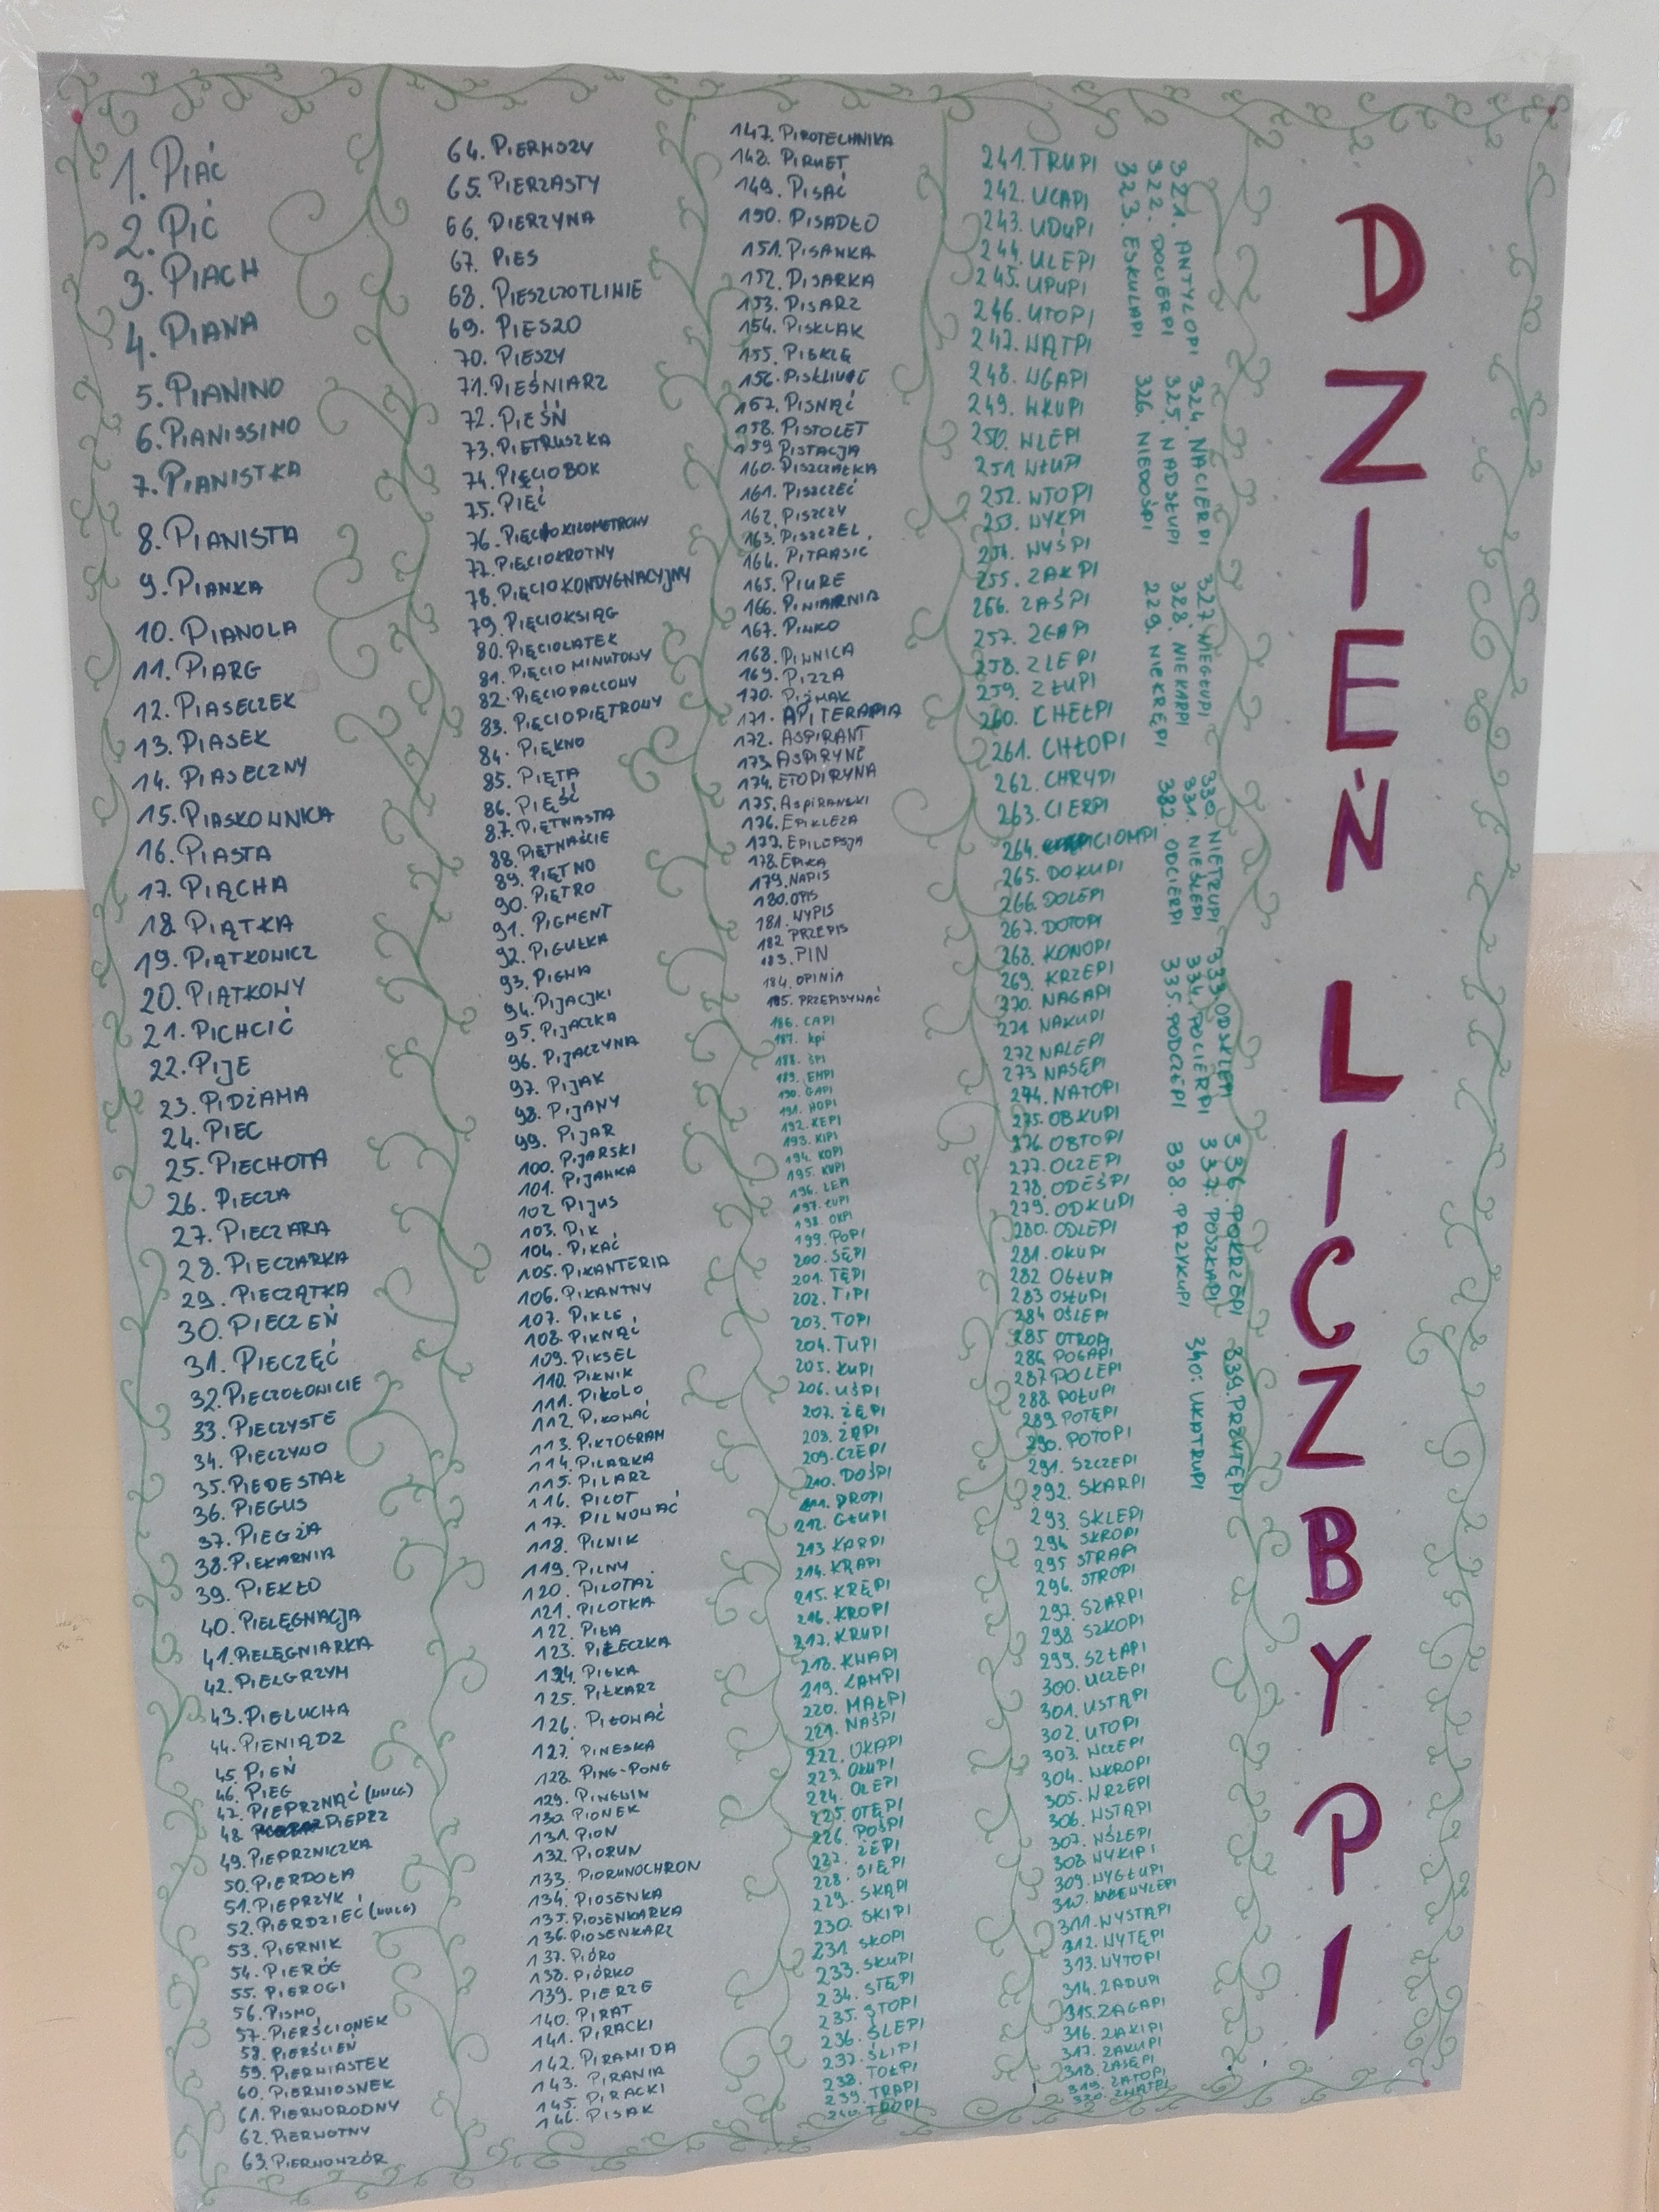 1. PIAĆ
2. PIĆ
3. PIACH
4. PIANA
5. PIANINO
6. PIANISSINO
7. PIANISTKA
8. PIANISTA
9. PIANKA
10. PIANOLA
11. PIARG
12. PIASECZEK
13. PIASEK
14. PIASECZNY
15. PIASKOWNICA
16. PIASTA
17. PIĄCHA
18. PIĄTKA
19. PIĄTKOWICZ
20. PIĄTKOWY
21. PICHCIĆ
22. PIJE
23. PIDŻAMA
24. PIEC
25. PIECHOTA
26. PIECZA
27. PIECZARA
28. PIECZARKA
29. PIECZĄTKA
30. PIECZEŃ
31. PIECZĘĆ
32. PIECZOŁOWICIE
33. PIECZYSTE
34. PIECZYWO
35. PIEDESTAŁ
36. PIEGUS
37. PIEGŻA
38. PIEKARNIA
39. PIEKŁO
40. PIELĘGNACJA
41. PIELĘGNIARKA
42. PIELGRZYM
43. PIELUCHA
44. PIENIĄDZ
45. PIEŃ
46. PIEG
47. PIEPRZNĄĆ (WULG)
48. PIEPRZ
49. PIEPRZNICZKA
50. PIERDOŁA
51. PIEPRZYK
52. PIERDZIEĆ (WULG)
53. PIERNIK
54. PIERÓG
55. PIEROGI
56. PISMO
57. PIERŚCIONEK
58. PIERŚCIEŃ
59. PIERWIASTEK
60. PIERWIOSNEK
61. PIERWORODNY
62. PIERWOTNY
63. PIERWOWZÓR
64. PIERWSZY
65. PIERZASTY
66. PIERZYNA
67. PIES
68. PIESZCZOTLIWIE
69. PIESZO
70. PIESZY
71. PIEŚNIARZ
72. PIEŚŃ
73. PIETRUSZKA
74. PIĘCIOBOK
75. PIĘĆ
76. PIĘCIOKILOMETROWY
77. PIĘCIOKROTNY
78. PIĘCIOKONDYGNACYJNY
79. PIĘCIOKSIĄG
80. PIĘCIOLATEK
81. PIĘCIOMINUTOWY
82. PIĘCIOPALCOWY
83. PIĘCIOPIĘTROWY
84. PIĘKNO
85. PIĘTA
86. PIĘŚĆ
87. PIĘTNASTA
88. PIĘTNAŚCIE
89. PIĘTNO
90. PIĘTRO
91. PIGMENT
92. PIGUŁKA
93. PIGWA
94. PIJACJKI
95. PIJACZKA
96. PIJACZYNA
97. PIJAK
98. PIJANY
99. PIJAR
100. PIJARSKI
101. PIJAWKA
102. PIJUS
103. PIK
104. PIKAĆ
105. PIKANTERIA
106. PIKANTNY
107. PIKLE
108. PIKNĄĆ
109. PIKSEL
110. PIKNIK
111. PIKOLO
112. PIKOWAĆ
113. PIKTOGRAM
114. PILARKA
115. PILARZ
116. PILOT
117. PILNOWAĆ
118. PILNIK
119. PILNY
120. PILOTAŻ
121. PILOTKA
122. PIŁA
123. PIŁECZKA
124. PIŁKA
125. PIŁKARZ
126. PIŁOWAĆ
127. PINESKA
128. PING-PONG
129. PINGWIN
130. PIONEK
131. PION
132. PIORUN
133. PIORUNOCHRON
134. PIOSENKA
135. PIOSENKARKA
136. PIOSENKARZ
137. PIÓRO
138. PIÓRKO
139. PIERZE
140. PIRAT
141. PIRACKI
142. PIRAMIDA
143. PIRANIA
145. PIRACKI
146. PISAK
147. PIROTECHNIKA
148. PIRUET
149. PISAĆ
150. PISADŁO
151. PISANKA
152. PISARKA
153. PISARZ
154. PISKLAK
155. PISKLĘ
156. PISKLIWIE
157. PISNĄĆ
158. PISTOLET
159 PISTACJA
160. PISZCZAŁKA
161. PISZCZEĆ
162. PISZCZY
163. PISZCZEL
164. PITRASIĆ
165. PIURE
166. PIWIARNIA
167. PIWKO
168. PIWNICA
169. PIZZA
170. PIŻMAK
171. APITERAPIA
172. ASPIRANT
173. ASPIRYNĘ
174. ETOPIRYNA
175. ASPIRANSKI
176. EPIKLEZA
177. EPILEPSJA
178. EPIKA
179. NAPIS
180. OPIS
181. WYPIS
182 PRZEPIS
183. PIN
184. OPINIA
185. PRZEPISYWAĆ
186. CAPI
187. kpi
188. ŚPI
189. EMPI
190. GAPI
191. HOPI
192. KEPI
193. KIPI
194. KOPI
195. KUPI
196. LEPI
197. ŁUPI
198. OKPI
199. POPI
200. SĘPI
201. TĘPI
202. TIPI
203. TOPI
204. TUPI
205. KUPI
206. UŚPI
207. ZĘPI
208. ZĄPI
209. CZEPI
210. DOŚPI
211. DROPI
212. GŁUPI
213 KARPI
214. KRAPI
215. KRĘPI
216. KROPI
217. KRUPI
218. KWAPI
219. LAMPI
220. MAŁPI
221. NAŚPI
222. OKAPI
223. OKUPI
224. OLEPI
225 OTĘPI
226. POŚPI
227. ŻEPI
228. SIĘPI
229. SKĄPI
230. SKIPI
231 SKOPI
233. SKUPI
234. STĘPI
235. STOPI
236. ŚLEPI
237. ŚLIPI
238. TOŁPI
239. TRAPI
240. TROPI
241. TRUPI
242. UCAPI
243. UDUPI
244. ULEPI
245. UPUPI
246. UTOPI
247. WĄTPI
248. WGAPI
249. WKUPI
250. WLEPI
251 WŁUPI
252. WTOPI
253. WYKPI
254. WYŚPI
255. ZAKPI
256. ZAŚPI
257. ZGAPI
258. ZLEPI
259. ZŁUPI
260. CHEŁPI
261. CHŁOPI
262. CHRYPI
263. CIERPI
264. CIOMPI
265. DOKUPI
266. DOLEPI
267. DOTOPI
268. KONOPI
269. KRZEPI
370. NAGAPI
271 NAKUPI
272 NALEPI
273 NASĘPI
274. NATOPI
275. OBKUPI
276. OBTOPI
277. OCZEPI
278. ODEŚPI
279. ODKUPI
280. ODLEPI
281. OKUPI
282 OGŁUPI
283 OSŁUPI
284 OŚLEPI
285 OTROPI
286 POGAPI
287 POLEPI
288. POŁUPI
289. POTĘPI
290. POTOPI
291. SZCZEPI
292. SKARPI
293. SKLEPI
294 SKROPI
295 STRAPI
296. STROPI
297. SZARPI
298. SZKOPI
299. SZŁAPI
300. UCZEPI
301. USTĄPI
302. UTOPI
303. WCZEPI
304. WKROPI
305. WRZEPI
306. WSTĄPI
307. WŚLEPI
308 WYKIPI
309. WYGŁUPI
310. WYLEPI
311. WYSTĄPI
312. WYTĘPI
313. WYTOPI
314. ZADUPI
315. ZAGAPI
316. ZAKIPI
317. ZAKUPI
318. ZASĘPI
319. ZATOPI
320. ZWĄTPI
321. ANTYLOPI
322. DOCIERPI
323. ESKULAPI
324. NACIERPI
325. NADSŁUPI
326. NIEDOŚPI
327 NIEGŁUPI
328. NIEKARPI
229. NIEKRĘPI
330. NIETRUPI
331. NIEŚLEPI
382. ODCIERPI
333. ODSKLEPI
334. POCIERPI
335. PODCZEPI
336. POKRZEPI
337. POSZKAPI
338. PRZYKUPI
339. PRZYTĘPI
340. UKATRUPI
DZIEŃ LICZBY PI